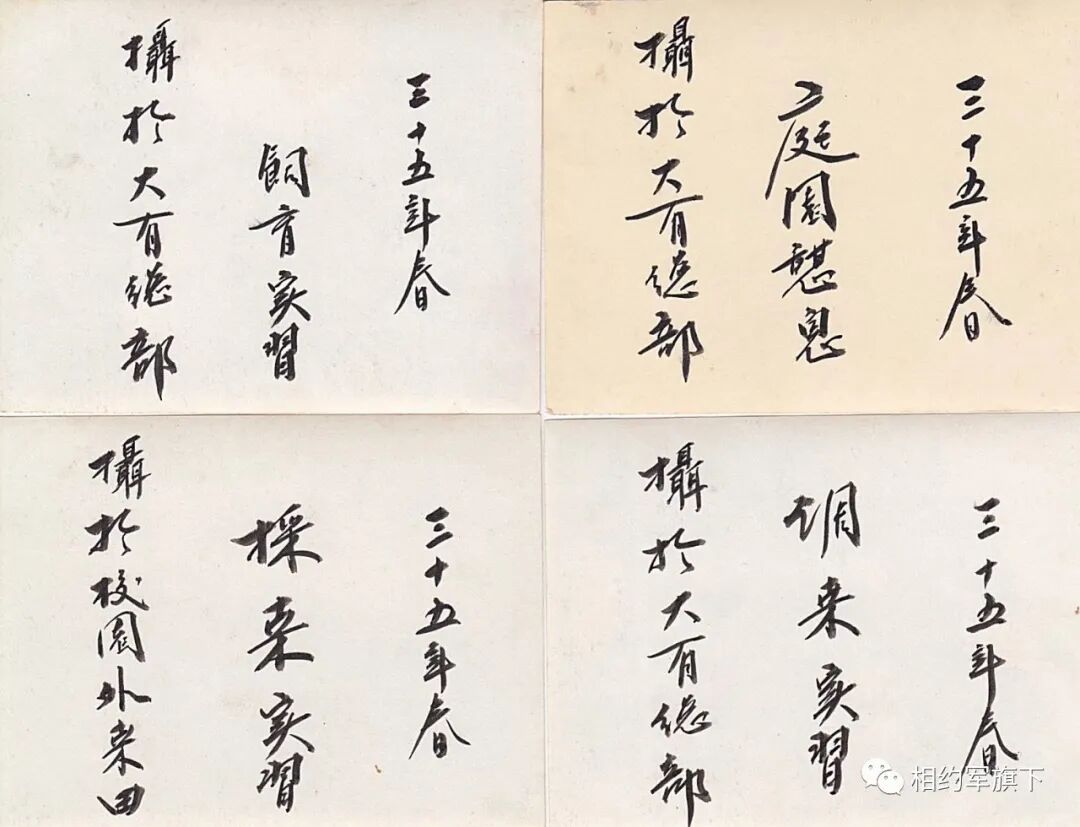 三十五年春
飼育实習
攝於大有總部
三十五年春
庭園憩息
攝於大有總部
三十五年春
採桑实習
攝於校園外桑田
三十五年春
調桑实習
攝於大有總部
相约军旗下